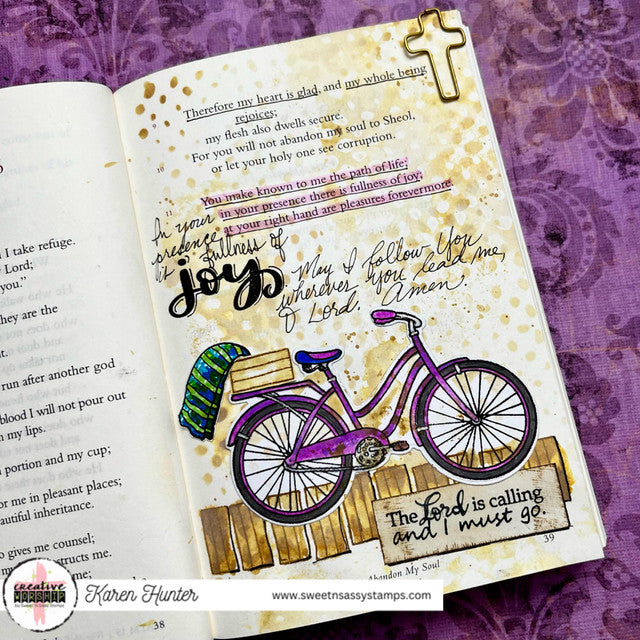 I take refuge.
Lord;
you."
they are the
nt.
run after another god
blood I will not pour out
n my lips.
portion and my cup;
or me in pleasant places;
autiful inheritance.
o gives me counsel;
instructs me.
38
Therefore my heart is glad, and my whole being
rejoices;
9
my flesh also dwells secure.
For you will not abandon my soul to Sheol,
10
or let your holy one see corruption.
You make known to me the path of life;
11
in your presence there is fullness of joy;
at your right hand are pleasures forevermore.
In your
presence
is fullness of
joy
May I follow You
wherever you lead me,
O Lord. Amen.
The Lord is calling
and I must go.
39
Abandon My Soul
creative
worship
by Sweet 'n Sassy Stamps
Karen Hunter
www.sweetnsassystamps.com